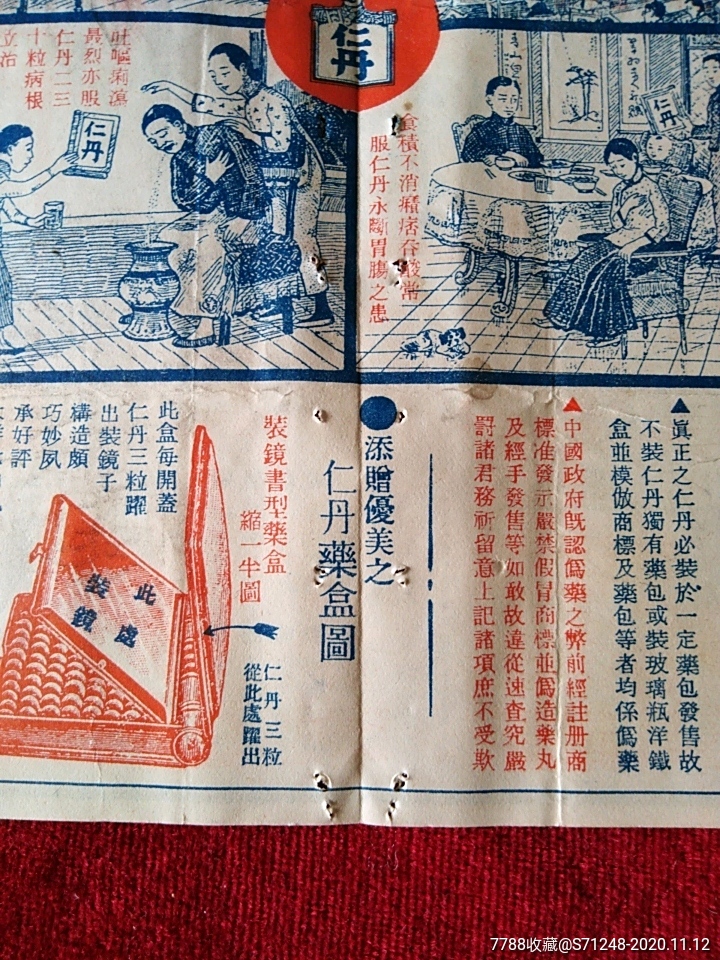 仁丹
仁丹
食積不消癪痞吞酸常
服仁丹永斷胃腸之患
吐嘔痢瀉
最烈亦服
仁丹二三
十粒病根
立治
仁丹
▲眞正之仁丹必裝於一定藥包發售故
不裝仁丹獨有藥包或裝玻璃瓶洋鐵
盒並模倣商標及藥包等者均係僞藥
▲中國政府旣認僞藥之弊前經註册商
標准發示嚴禁假冒商標並僞造藥丸
及經手發售等如敢故違從速查究嚴
罰諸君務祈留意上記諸項庶不受欺
●添贈優美之
仁丹藥盒圖
裝鏡書型藥盒
縮一半圖
仁丹三粒
從此處躍出
此盒每開蓋
仁丹三粒躍
出裝鏡子
構造頗
巧妙夙
承好評
此處
裝鏡
7788收藏@S71248-2020.11.12